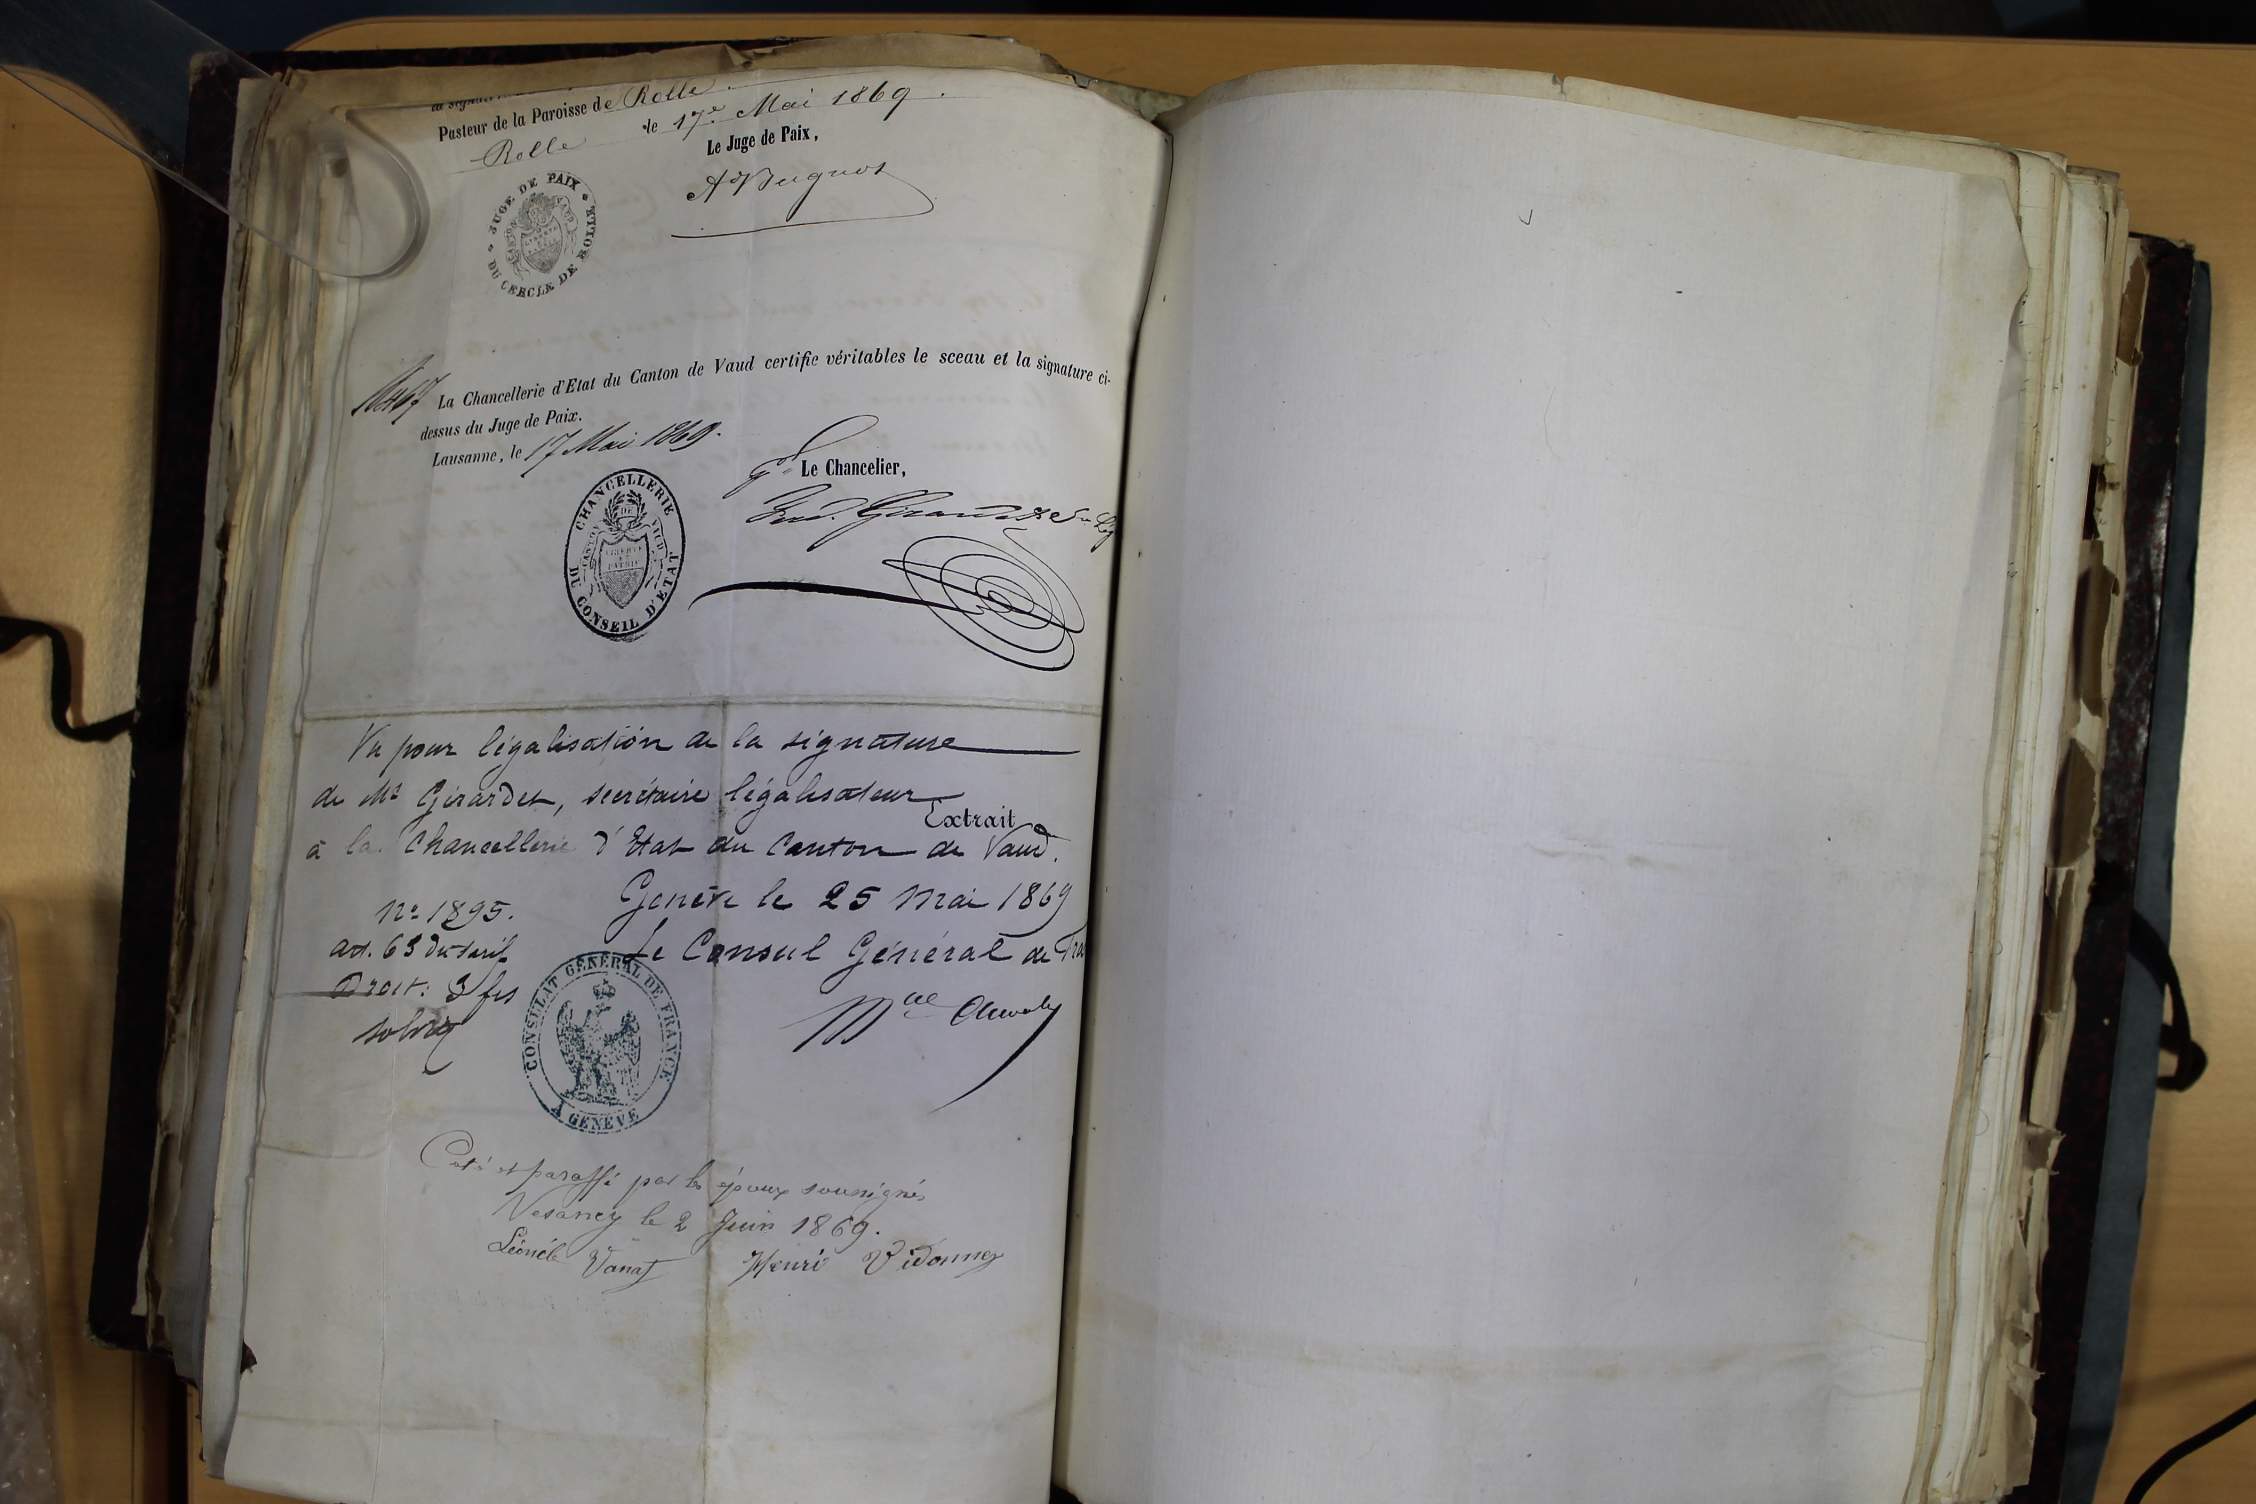 Pasteur de la Paroisse de Rolle.
Rolle le 17e Mai 1869.
Le Juge de Paix,
JUGE DE PAIX
DU CERCLE DE ROLLE
CANTON DE VAUD
LIBERTÉ ET PATRIE
La Chancellerie d'Etat du Canton de Vaud certifie véritables le sceau et la signature ci-
dessus du Juge de Paix.
Lausanne, le 17 Mai 1869.
Le Chancelier,
Girardet
CHANCELLERIE
DU CONSEIL D'ETAT
CANTON DE VAUD
LIBERTÉ ET PATRIE
Vu pour légalisation de la signature
de Mr Girardet, secrétaire légalisateur
Extrait
à la Chancellerie d'Etat du Canton de Vaud.
Genève le 25 Mai 1869
No 1895.
art. 63 du tarif
Le Consul Général de
Droit: 3 fcs
CONSULAT GÉNÉRAL DE FRANCE
A GENÈVE
Coté et paraffé par les époux soussignés
Vesancy le 2 Juin 1869.
Vanat Henri Vidonney